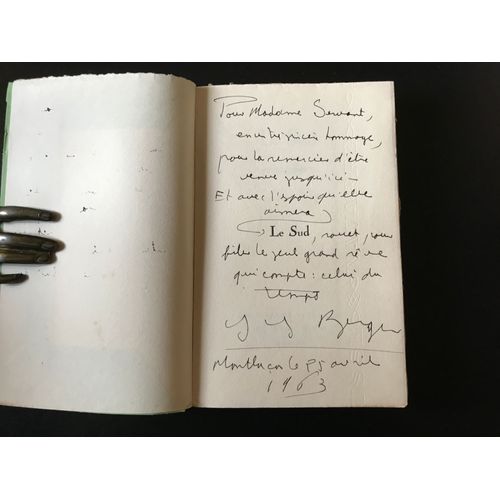 Pour Madame Servant,
en très sincère hommage,
pour la remercier d'être
venue jusqu'ici —
Et avec l'espoir qu'elle
aimera
Le Sud, rouet, pour
filer le seul grand rêve
qui compte : celui du
temps
Berger
Montluçon le 25 avril
1963